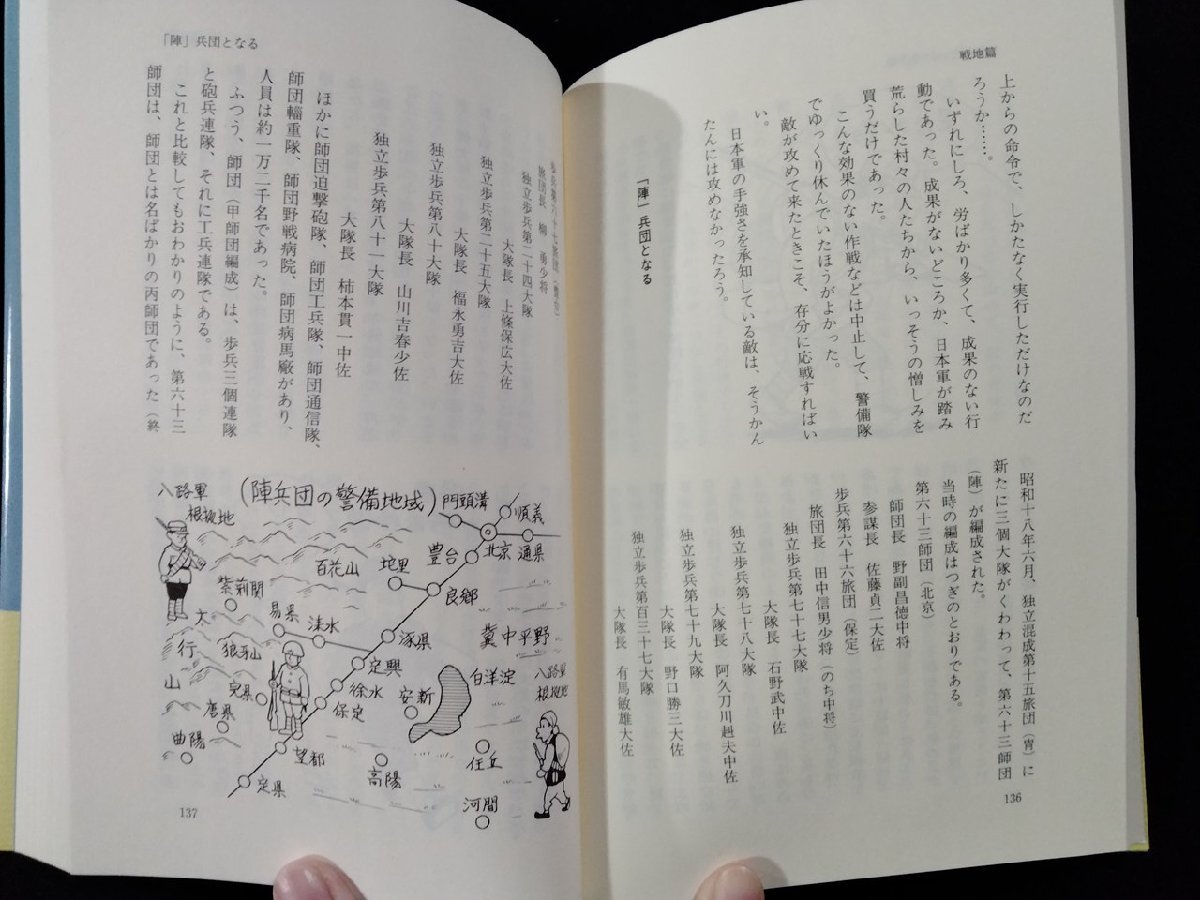 戦地篇
上からの命令で、しかたなく実行しただけなのだ
ろうか……。
いずれにしろ、労ばかり多くて、成果のない行
動であった。成果がないどころか、日本軍が踏み
荒らした村々の人たちから、いっそうの憎しみを
買うだけであった。
こんな効果のない作戦などは中止して、警備隊
でゆっくり休んでいたほうがよかった。
敵が攻めて来たときこそ、存分に応戦すればい
い。
日本軍の手強さを承知している敵は、そうかん
たんには攻めなかったろう。
「陣」兵団となる
昭和十八年六月、独立混成第十五旅団(冑)に
新たに三個大隊がくわわって、第六十三師団
(陣)が編成された。
当時の編成はつぎのとおりである。
第六十三師団(北京)
師団長 野副昌徳中将
参謀長 佐藤貞二大佐
歩兵第六十六旅団(保定)
旅団長 田中信男少将(のち中将)
独立歩兵第七十七大隊
大隊長 石野武中佐
独立歩兵第七十八大隊
大隊長 阿久刀川赳夫中佐
独立歩兵第七十九大隊
大隊長 野口勝三大佐
独立歩兵第百三十七大隊
大隊長 有馬敏雄大佐
136
「陣」兵団となる
歩兵第六十七旅団
旅団長 柳 勇少将
独立歩兵第二十四大隊
大隊長 上條保広大佐
独立歩兵第二十五大隊
大隊長 福永勇吉大佐
独立歩兵第八十大隊
大隊長 山川吉春少佐
独立歩兵第八十一大隊
大隊長 柿本貫一中佐
ほかに師団迫撃砲隊、師団工兵隊、師団通信隊、
師団輜重隊、師団野戦病院、師団病馬廠があり、
人員は約一万二千名であった。
ふつう、師団(甲師団編成)は、歩兵三個連隊
と砲兵連隊、それに工兵連隊である。
これと比較してもおわかりのように、第六十三
師団は、師団とは名ばかりの丙師団であった(終
(陣兵団の警備地域)
八路軍
根拠地
門頭溝
順義
北京
通県
豊台
百花山
坨里
良郷
紫荊関
易県
淶水
涿県
冀中平野
太
行
山
狼牙山
定興
徐水
安新
白洋淀
八路軍
根拠地
完県
保定
唐県
曲陽
望都
高陽
任丘
定県
河間
137